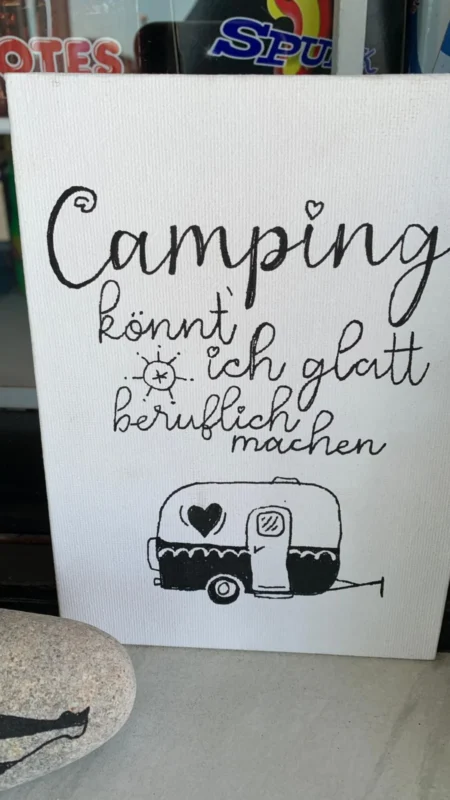 OTES
SPUNK
Camping
könnt'
ich glatt
beruflich
machen